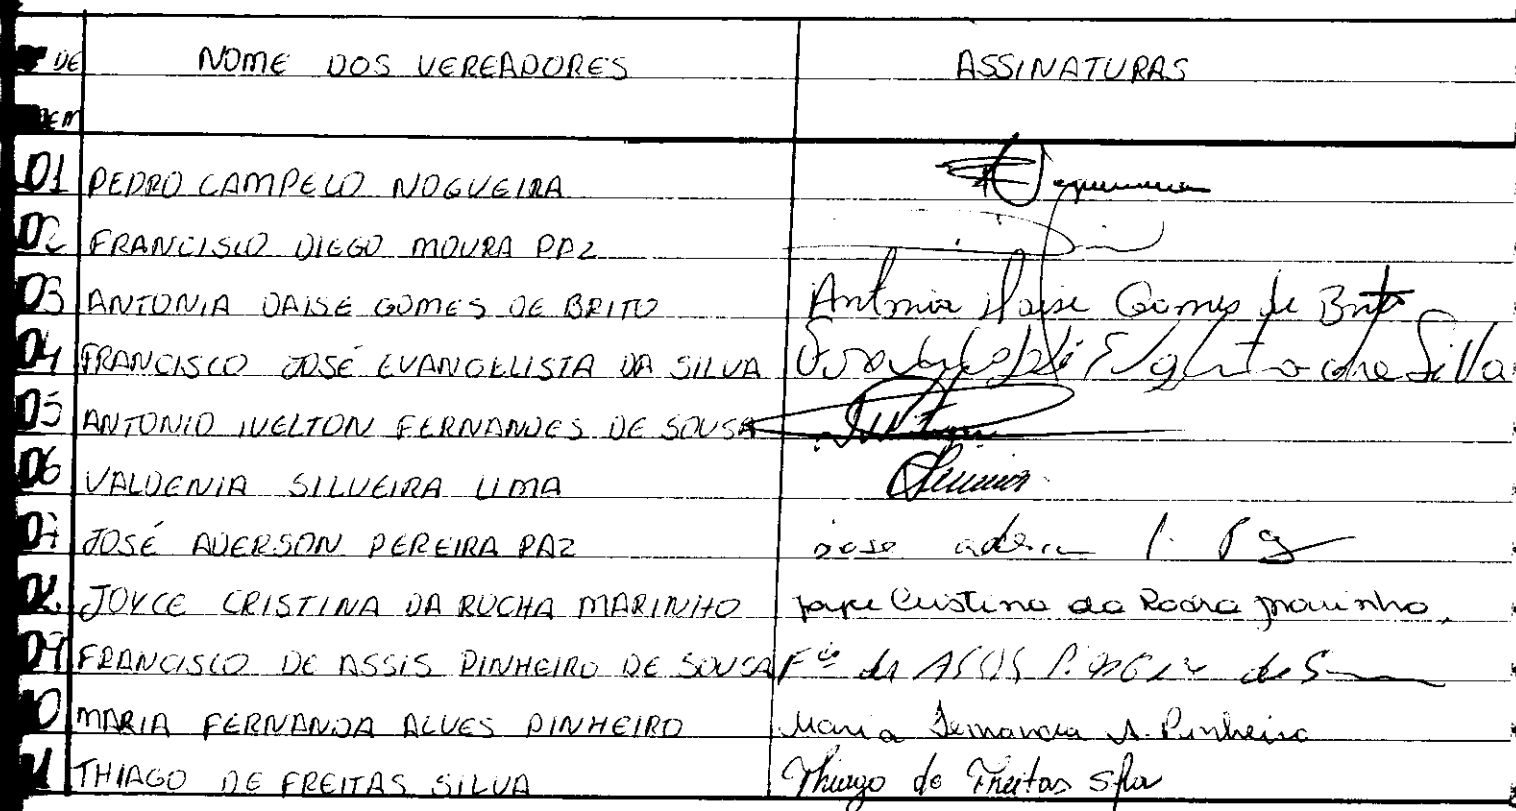 DE NOME DOS VEREADORES ASSINATURAS
01 PEDRO CAMPELO NOGUEIRA
02 FRANCISCO DIEGO MOURA PAZ
03 ANTONIA DAISE GOMES DE BRITO Antonia Daise Gomes de Brito
04 FRANCISCO JOSÉ EVANGELLISTA DA SILVA da Silva
05 ANTONIO IVELTON FERNANDES DE SOUSA
06 VALDENIA SILVEIRA LIMA
07 JOSÉ ADERSON PEREIRA PAZ jose P.
08 JOYCE CRISTINA DA ROCHA MARINHO Joyce Cristina da Rocha Marinho.
09 FRANCISCO DE ASSIS PINHEIRO DE SOUSA Fco de ASSIS de
10 MARIA FERNANDA ALVES PINHEIRO Maria Fernanda A. Pinheiro
11 THIAGO DE FREITAS SILVA Thiago de Freitas Silva